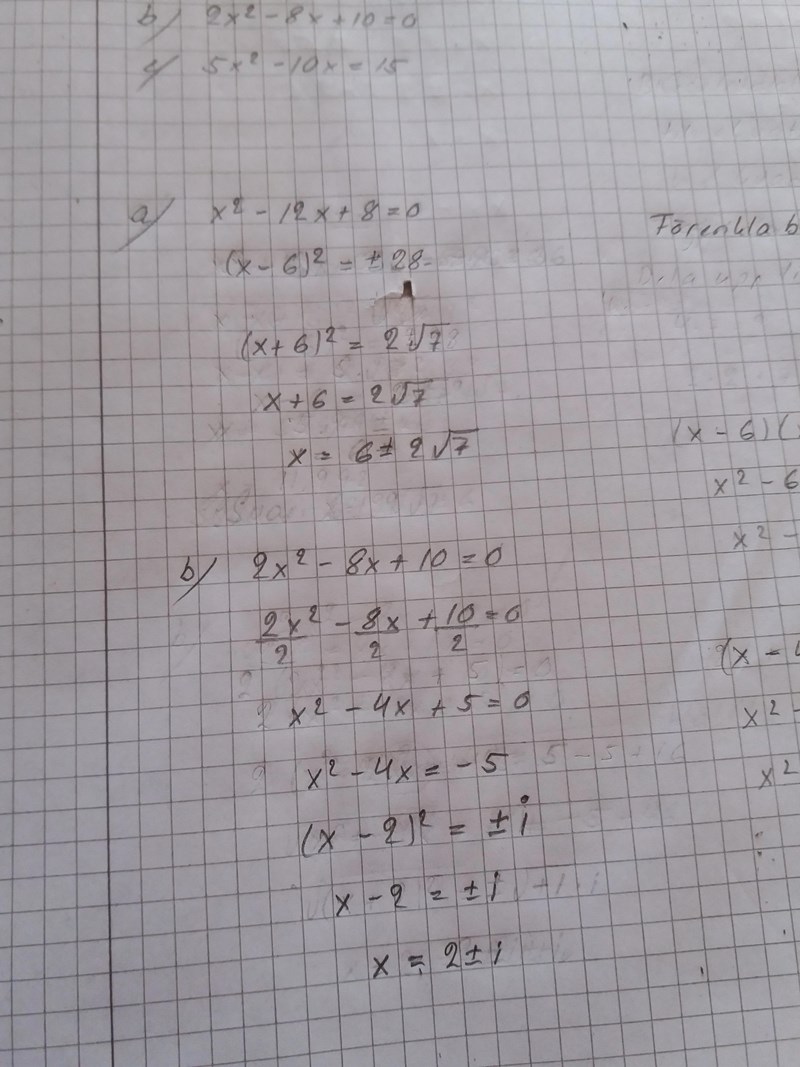 b) 2x² - 8x + 10 = 0
c) 5x² - 10x = 15
a) x² - 12x + 8 = 0
(x - 6)² = ± 28
(x + 6)² = 2√7
x + 6 = 2√7
x = 6 ± 2√7
b) 2x² - 8x + 10 = 0
2x²/2 - 8x/2 + 10/2 = 0
x² - 4x + 5 = 0
x² - 4x = -5
(x - 2)² = ± i
x - 2 = ± i
x = 2 ± i
Förenkla b
(x - 6)(
x² - 6
x² -
(x - 4
x² -
x²